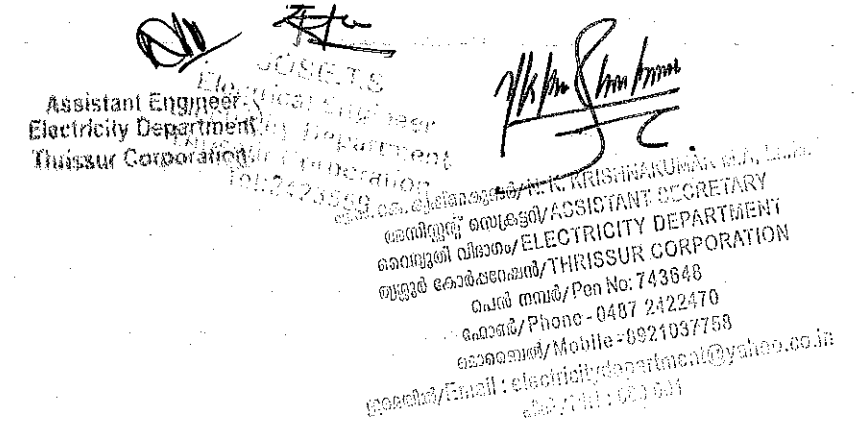 Assistant Engineer
Electricity Department
Thrissur Corporation
JOSE.T.S
Electrical Engineer
Electricity Department
Thrissur Corporation
Tel:2423559
എൻ.കെ.കൃഷ്ണകുമാർ/N. K. KRISHNAKUMAR M.A, LL.B.
അസിസ്റ്റന്റ് സെക്രട്ടറി/ASSISTANT SECRETARY
വൈദ്യുതി വിഭാഗം/ELECTRICITY DEPARTMENT
തൃശ്ശൂർ കോർപ്പറേഷൻ/THRISSUR CORPORATION
പെൻ നമ്പർ/Pen No: 743648
ഫോൺ/Phone - 0487 2422470
മൊബൈൽ/Mobile -8921037758
ഇമെയിൽ/Email : electricitydepartment@yahoo.co.in
പിൻ/PIN : 680 001